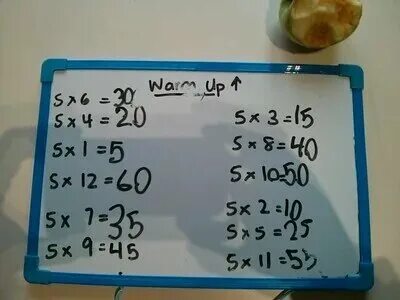 Warm Up ↑
5 x 6 = 30
5 x 4 = 20
5 x 1 = 5
5 x 12 = 60
5 x 7 = 35
5 x 9 = 45
5 x 3 = 15
5 x 8 = 40
5 x 10 = 50
5 x 2 = 10
5 x 5 = 25
5 x 11 = 55